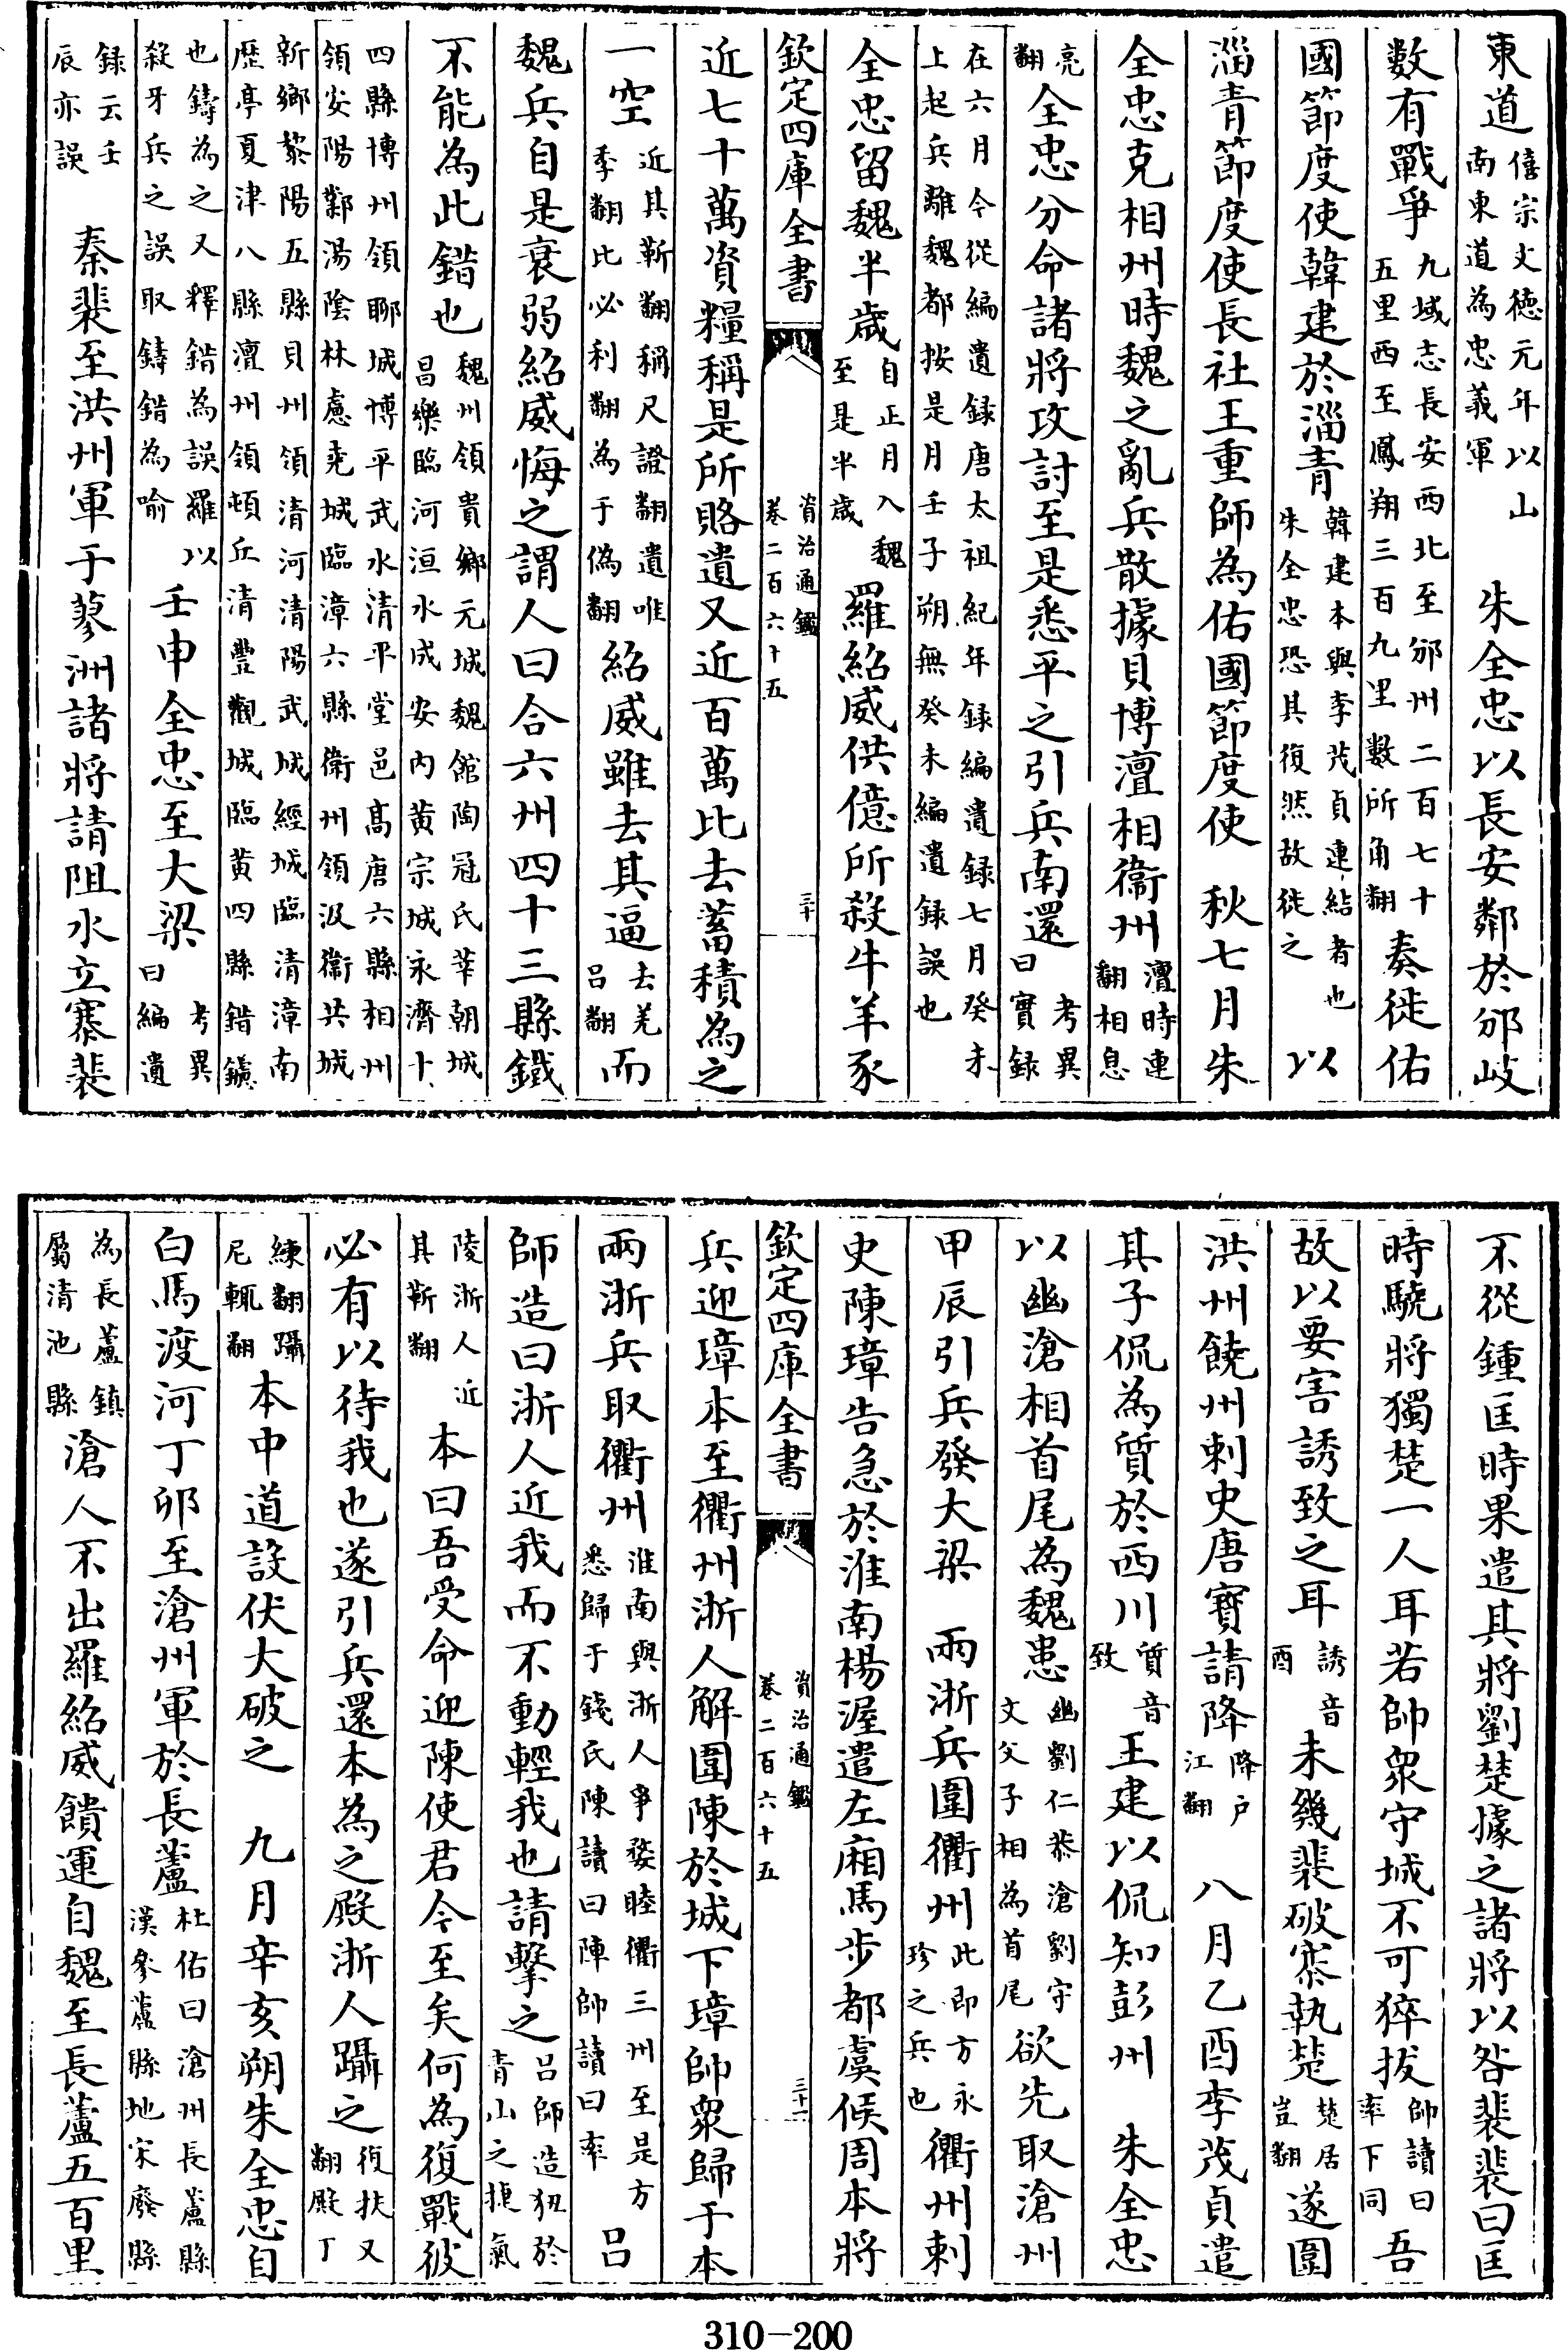 東道僖宗文德元年以山南東道為忠義軍 朱全忠以長安鄰於邠岐
數有戰爭九域志長安西北至邠州二百七十五里西至鳳翔三百九里數所角翻奏徙佑
國節度使韓建於淄青韓建本與李茂貞連結者也朱全忠恐其復然故徙之以
淄青節度使長社王重師為佑國節度使 秋七月朱
全忠克相州時魏之亂兵散據貝博澶相衞州澶時連翻相息
亮翻全忠分命諸將攻討至是悉平之引兵南還考異曰實錄
在六月今從編遺録唐太祖紀年録編遺録七月癸未上起兵離魏都按是月壬子朔無癸未編遺録誤也
全忠留魏半歲自正月入魏至是半歲羅紹威供億所殺牛羊豕
欽定四庫全書 資治通鑑卷二百六十五 三十
近七十萬資糧稱是所賂遺又近百萬比去蓄積為之
一空近其靳翻稱尺證翻遺唯季翻比必利翻為于偽翻紹威雖去其逼去羌呂翻而
魏兵自是衰弱紹威悔之謂人曰合六州四十三縣鐵
不能為此錯也魏州領貴鄉元城魏館陶冠氏莘朝城昌樂臨河洹水成安内黄宗城永濟十
四縣博州領聊城博平武水清平堂邑髙唐六縣相州領安陽鄴湯陰林慮堯城臨漳六縣衞州領汲衞共城
新鄉黎陽五縣貝州領清河清陽武城經城臨清漳南歴亭夏津八縣澶州領頓丘清豐觀城臨黄四縣錯鑢
也鑄為之又釋錯為誤羅以殺牙兵之誤取鑄錯為喻壬申全忠至大梁考異曰編遺
録云壬辰亦誤 秦裴至洪州軍于蓼洲諸將請阻水立寨裴
不從鍾匡時果遣其將劉楚據之諸將以咎裴裴曰匡
時驍將獨楚一人耳若帥衆守城不可猝拔帥讀曰率下同吾
故以要害誘致之耳誘音酉未幾裴破寨執楚楚居豈翻遂圍
洪州饒州刺史唐寶請降降户江翻 八月乙酉李茂貞遣
其子侃為質於西川質音致王建以侃知彭州 朱全忠
以幽滄相首尾為魏患幽劉仁恭滄劉守文父子相為首尾欲先取滄州
甲辰引兵發大梁 兩浙兵圍衢州此即方永珍之兵也衢州刺
史陳璋告急於淮南楊渥遣左廂馬步都虞候周本將
欽定四庫全書 資治通鑑卷二百六十五 三十一
兵迎璋本至衢州浙人解圍陳於城下璋帥衆歸于本
兩浙兵取衢州淮南與浙人爭婺睦衢三州至是方悉歸于錢氏陳讀曰陣帥讀曰率呂
師造曰浙人近我而不動輕我也請擊之呂師造狃於青山之捷氣
陵浙人近其靳翻本曰吾受命迎陳使君今至矣何為復戰彼
必有以待我也遂引兵還本為之殿浙人躡之復扶又翻殿丁
練翻躡尼輒翻本中道設伏大破之 九月辛亥朔朱全忠自
白馬渡河丁卯至滄州軍於長蘆杜佑曰滄州長蘆縣漢參蘆縣地宋廢縣
為長蘆鎮屬清池縣滄人不出羅紹威饋運自魏至長蘆五百里
310-200